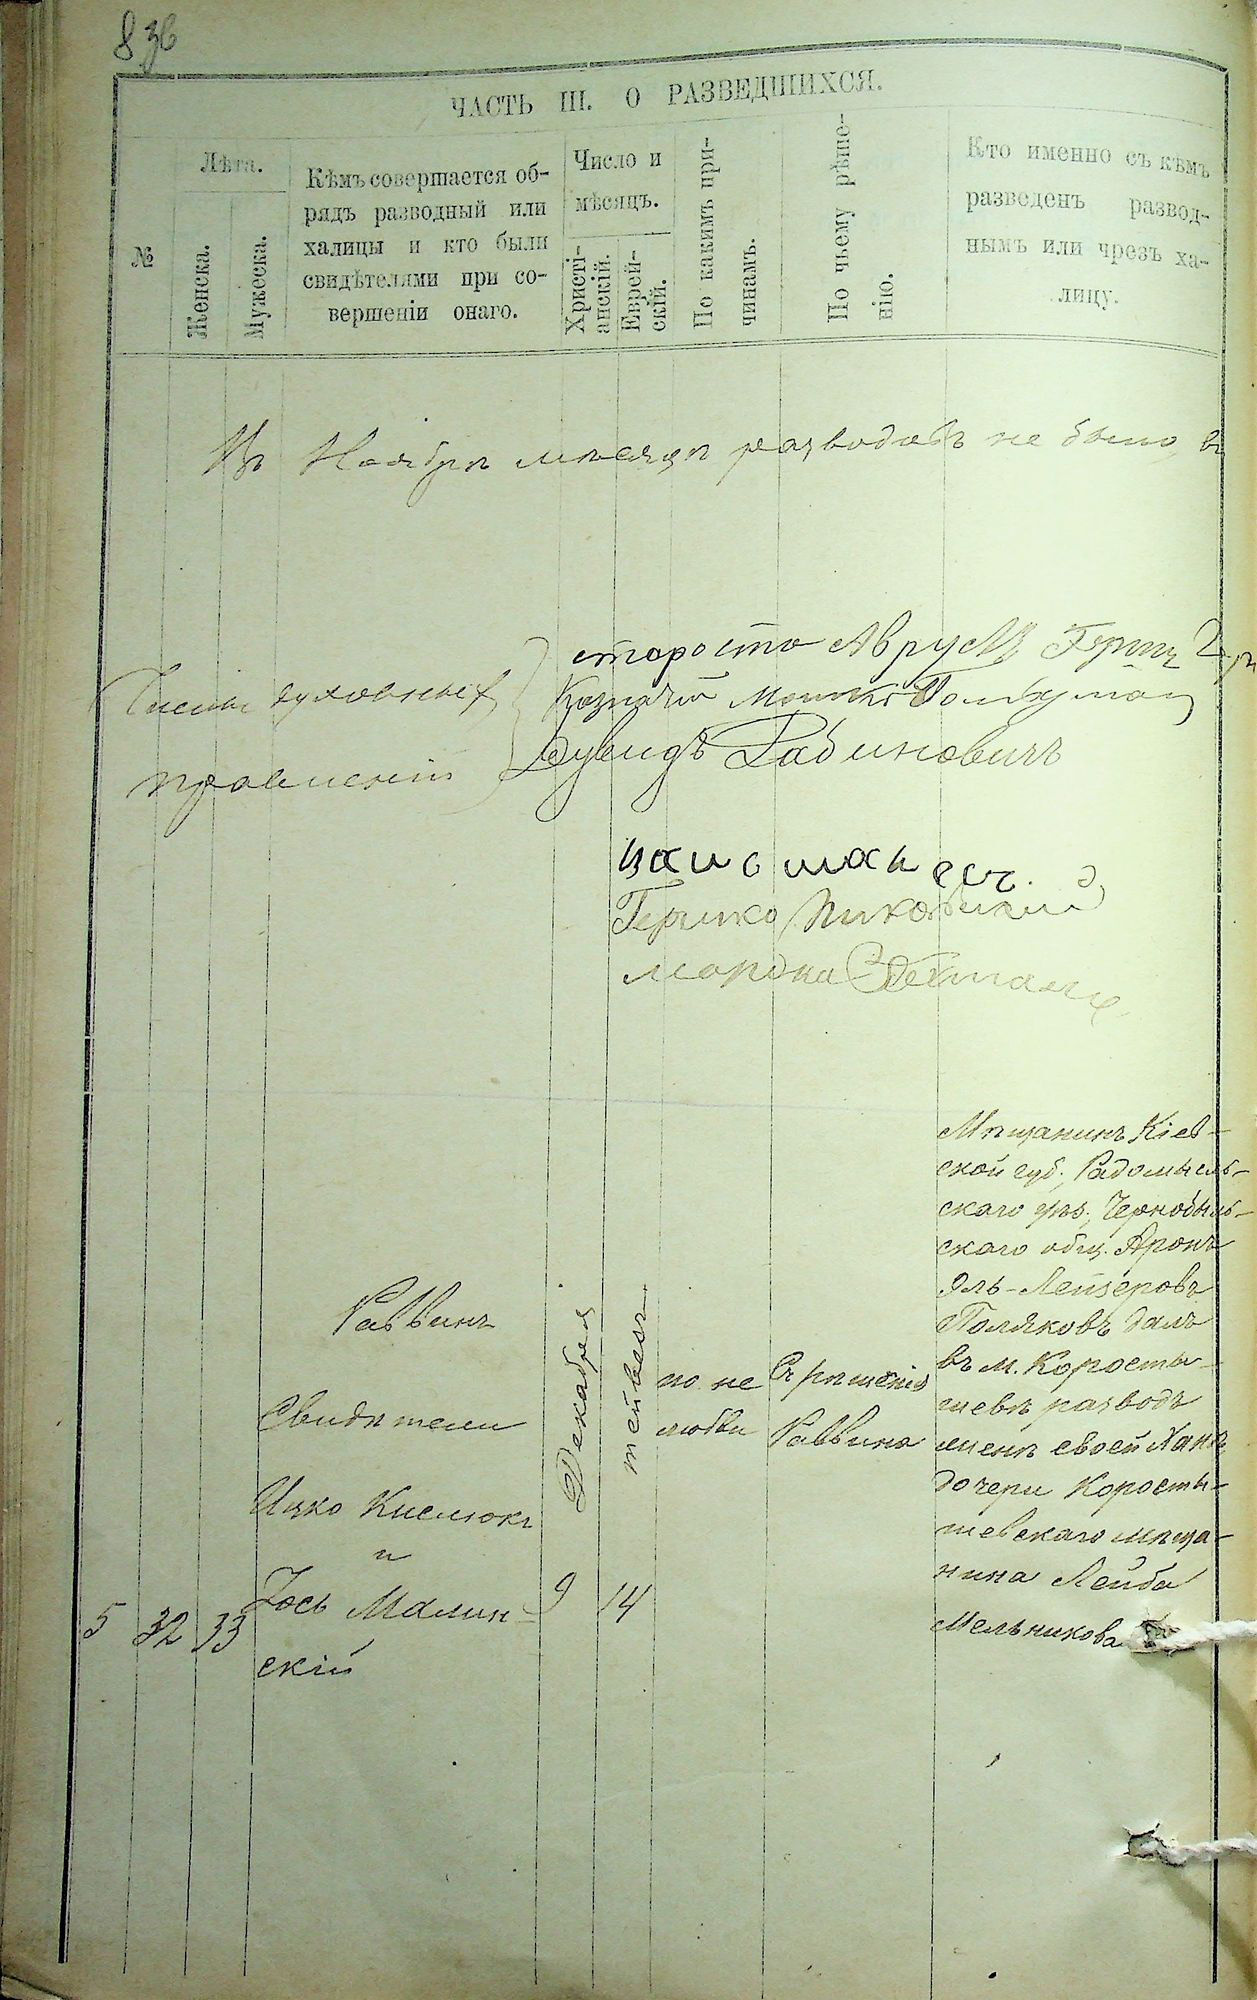 836
ЧАСТЬ III. О РАЗВЕДШИХСЯ.
№
Лѣта.
Женска.
Мужеска.
Кѣмъ совершается об-
рядъ разводный или
халицы и кто были
свидѣтелями при со-
вершеніи онаго.
Число и
мѣсяцъ.
Христі-
анскій.
Еврей-
скій.
По какимъ при-
чинамъ.
По чьему рѣше-
нію.
Кто именно съ кѣмъ
разведенъ развод-
нымъ или чрезъ ха-
лицу.
Въ Ноябрѣ мѣсяцѣ разводовъ не было
Члены духовныхъ
правленій
староста Аврумъ
Казначей Мошко
Дувидъ Рабиновичъ
Гершко
Мордка
5
32
33
Раввинъ
Свидѣтели
Ицко Киелюкъ
и
Іось Малин-
скій
Декабря
9
тейвесъ
14
по не
любви
Съ рѣшенія
Раввина
Мѣщанинъ Кіев-
ской губ., Радомысль-
скаго уѣз., Чернобыль-
скаго общ. Аронъ
Эль-Лейзеровъ
Поляковъ далъ
въ м. Коросты-
шевѣ разводъ
женѣ своей Ханѣ
дочери Коросты-
шевскаго мѣща-
нина Лейба
Мельникова